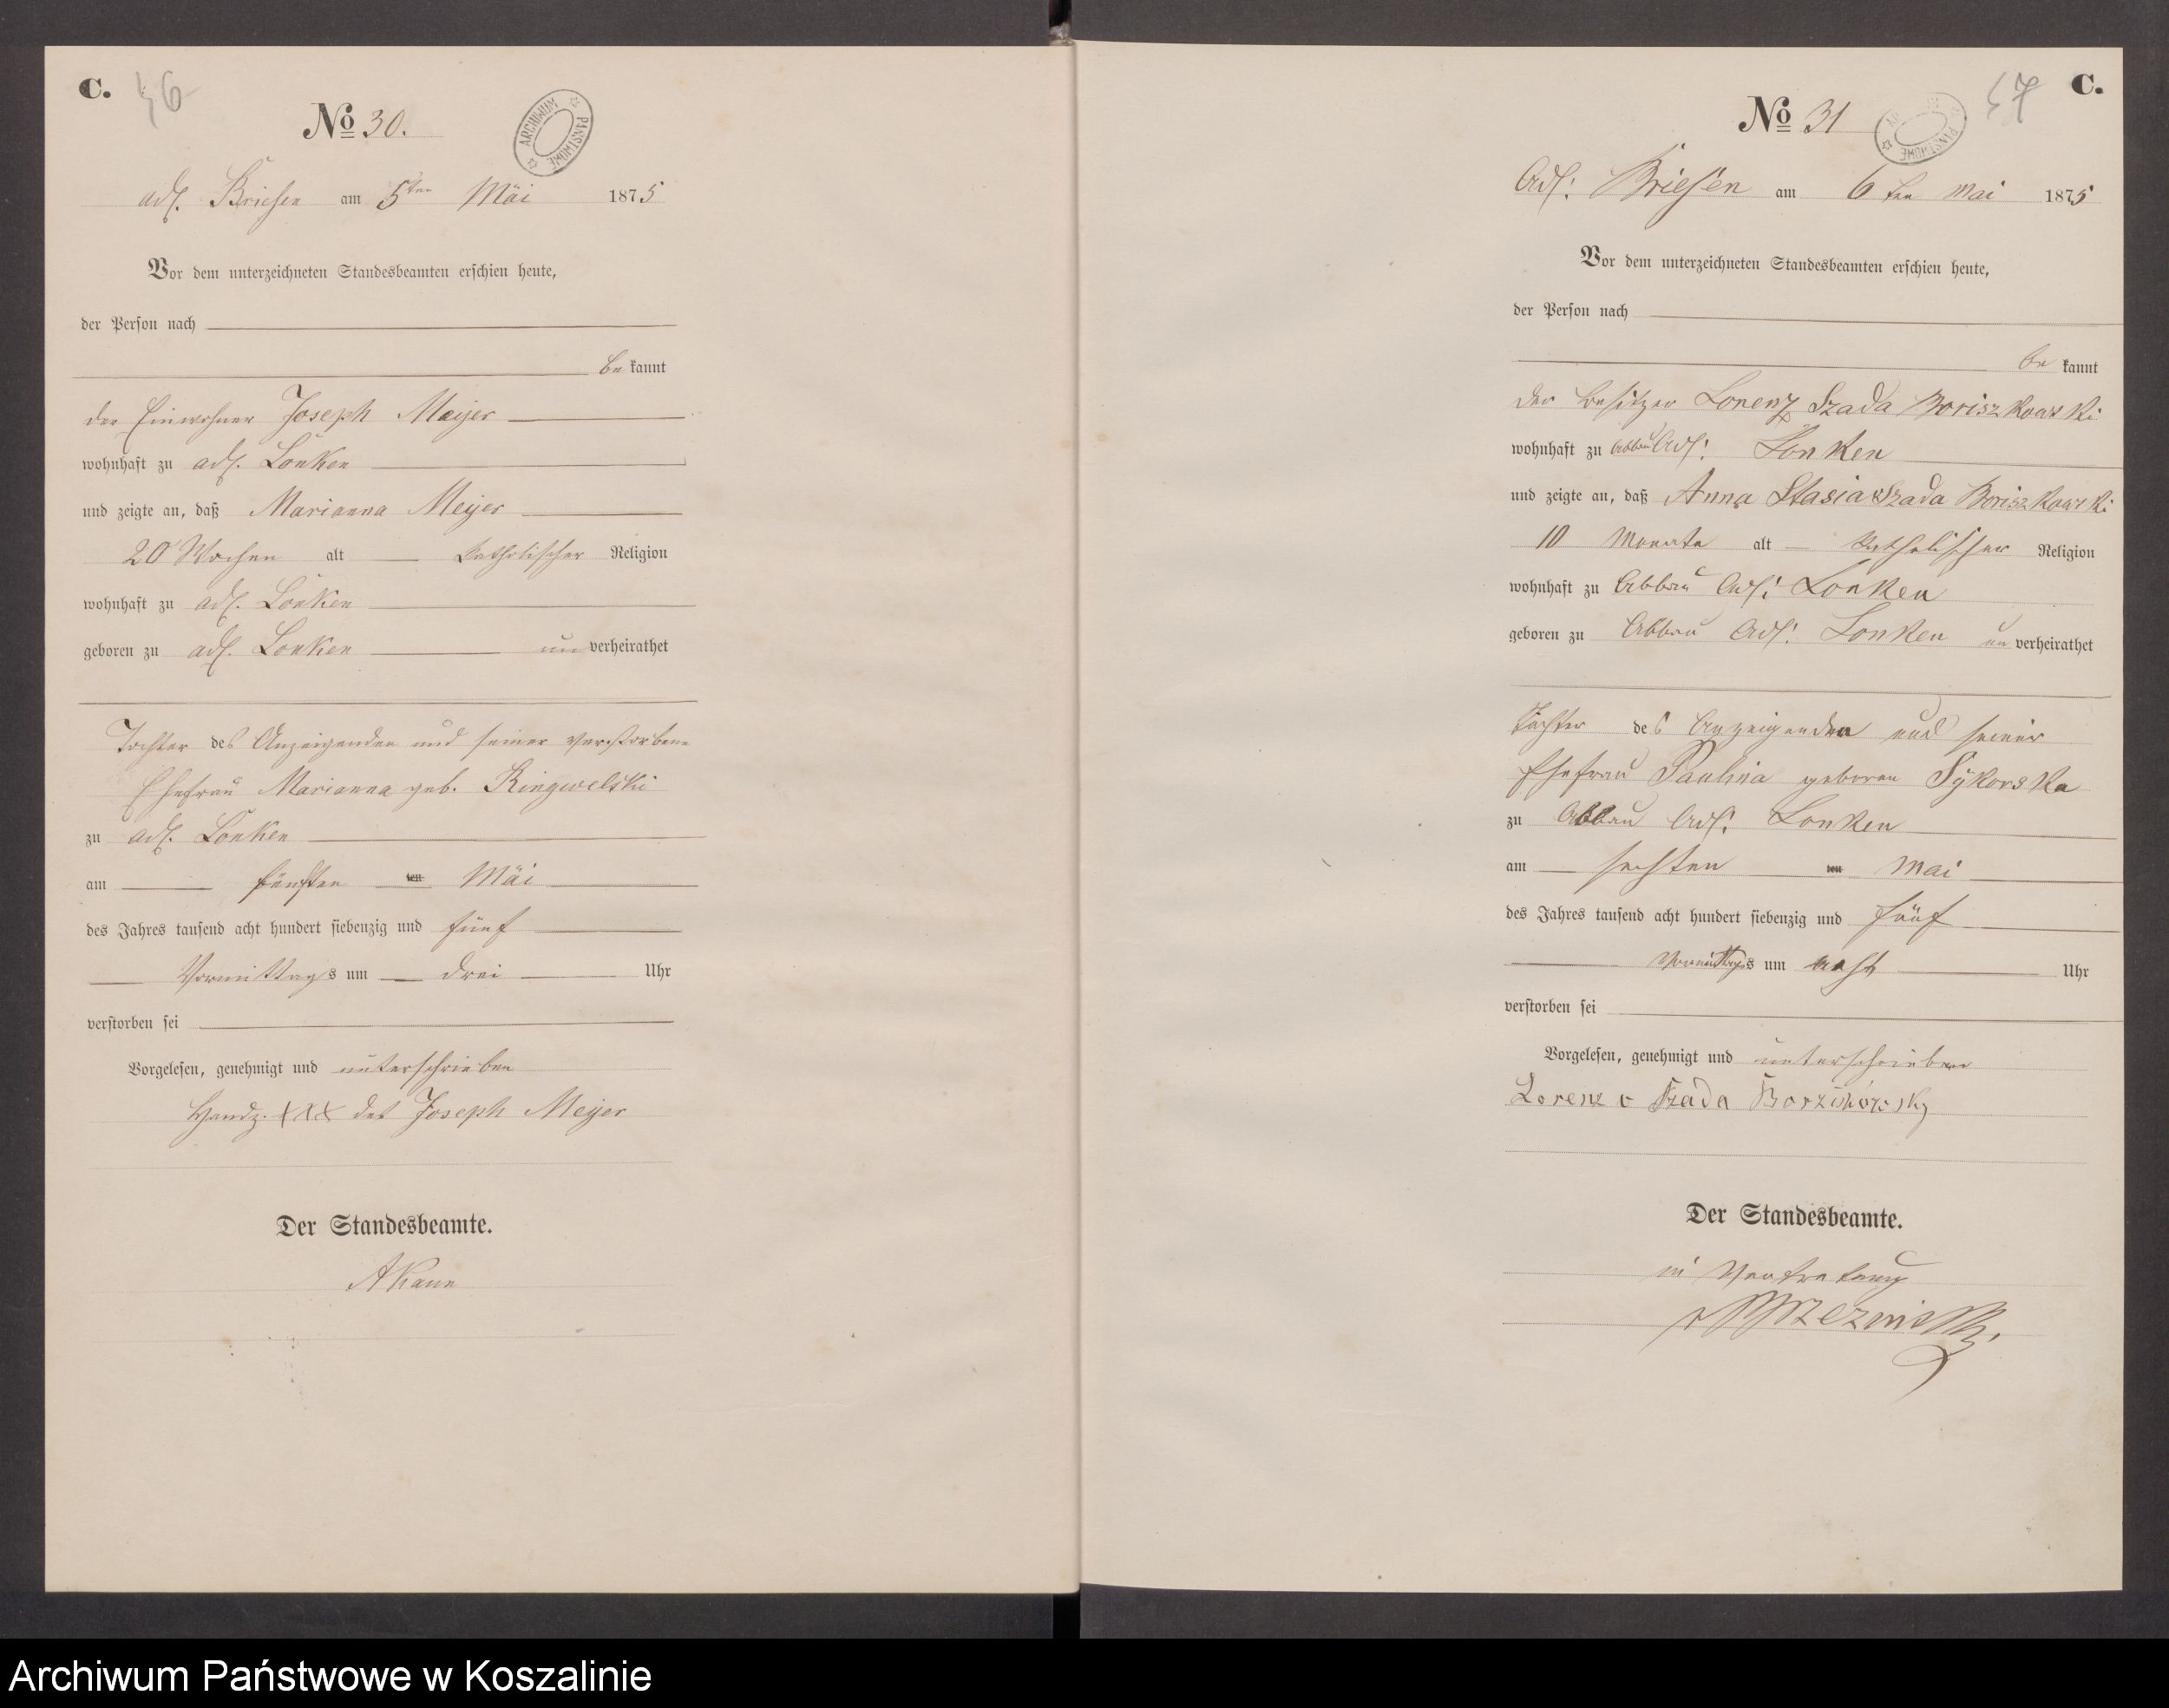 C. 46
No 30.
ARCHIWUM PAŃSTWOWE
adl. Briesen am 5ten Mäi 1875
Vor dem unterzeichneten Standesbeamten erschien heute,
der Person nach
bekannt
der Einwohner Joseph Meijer
wohnhaft zu adl. Lonken
und zeigte an, daß Marianna Meijer
20 Wochen alt katholischer Religion
wohnhaft zu adl. Lonken
geboren zu adl. Lonken unverheirathet
Tochter des Anzeigenden und seiner verstorbene
Ehefrau Marianna geb. Ringwelski
zu adl. Lonken
am fünften ten Mäi
des Jahres tausend acht hundert siebenzig und fünf
Vormittags um drei Uhr
verstorben sei
Vorgelesen, genehmigt und unterschrieben
Handz. XXX des Joseph Meijer
Der Standesbeamte.
C. 47
No 31
PAŃSTWOWE
Adl: Briesen am 6ten Mai 1875
Vor dem unterzeichneten Standesbeamten erschien heute,
der Person nach
bekannt
der Besitzer Lorenz Szada Boriszkowski
wohnhaft zu Abbau Adl: Lonken
und zeigte an, daß Anna Stasia Szada Boriszkowski
10 Monate alt katholischer Religion
wohnhaft zu Abbau Adl: Lonken
geboren zu Abbau Adl: Lonken unverheirathet
Tochter des Anzeigenden und seiner
Ehefrau Paulina geboren Sykorska
zu Abbau Adl: Lonken
am sechsten ten Mai
des Jahres tausend acht hundert siebenzig und fünf
Vormittags um acht Uhr
verstorben sei
Vorgelesen, genehmigt und unterschrieben
Lorenz v Szada Borzikowsky
Der Standesbeamte.
in Vertretung
Archiwum Państwowe w Koszalinie